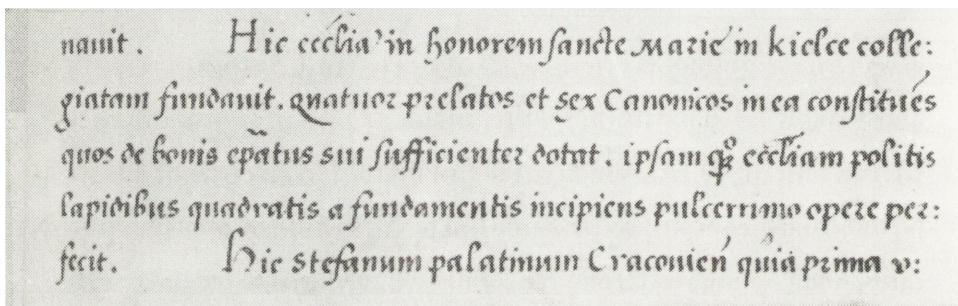 nauit. Hic eccĺia in honorem sancte Marie in kielce colle:
giatam fundauit. quatuor prelatos et sex Canonicos in ea constituēs
quos de bonis ep̄atus sui sufficienter dotat. ipsam qꝫ eccl̄iam politis
lapidibus quadratis a fundamentis incipiens pulcerrimo opere per:
fecit. Hic Stefanum palatinum Cracouień quia prima v: